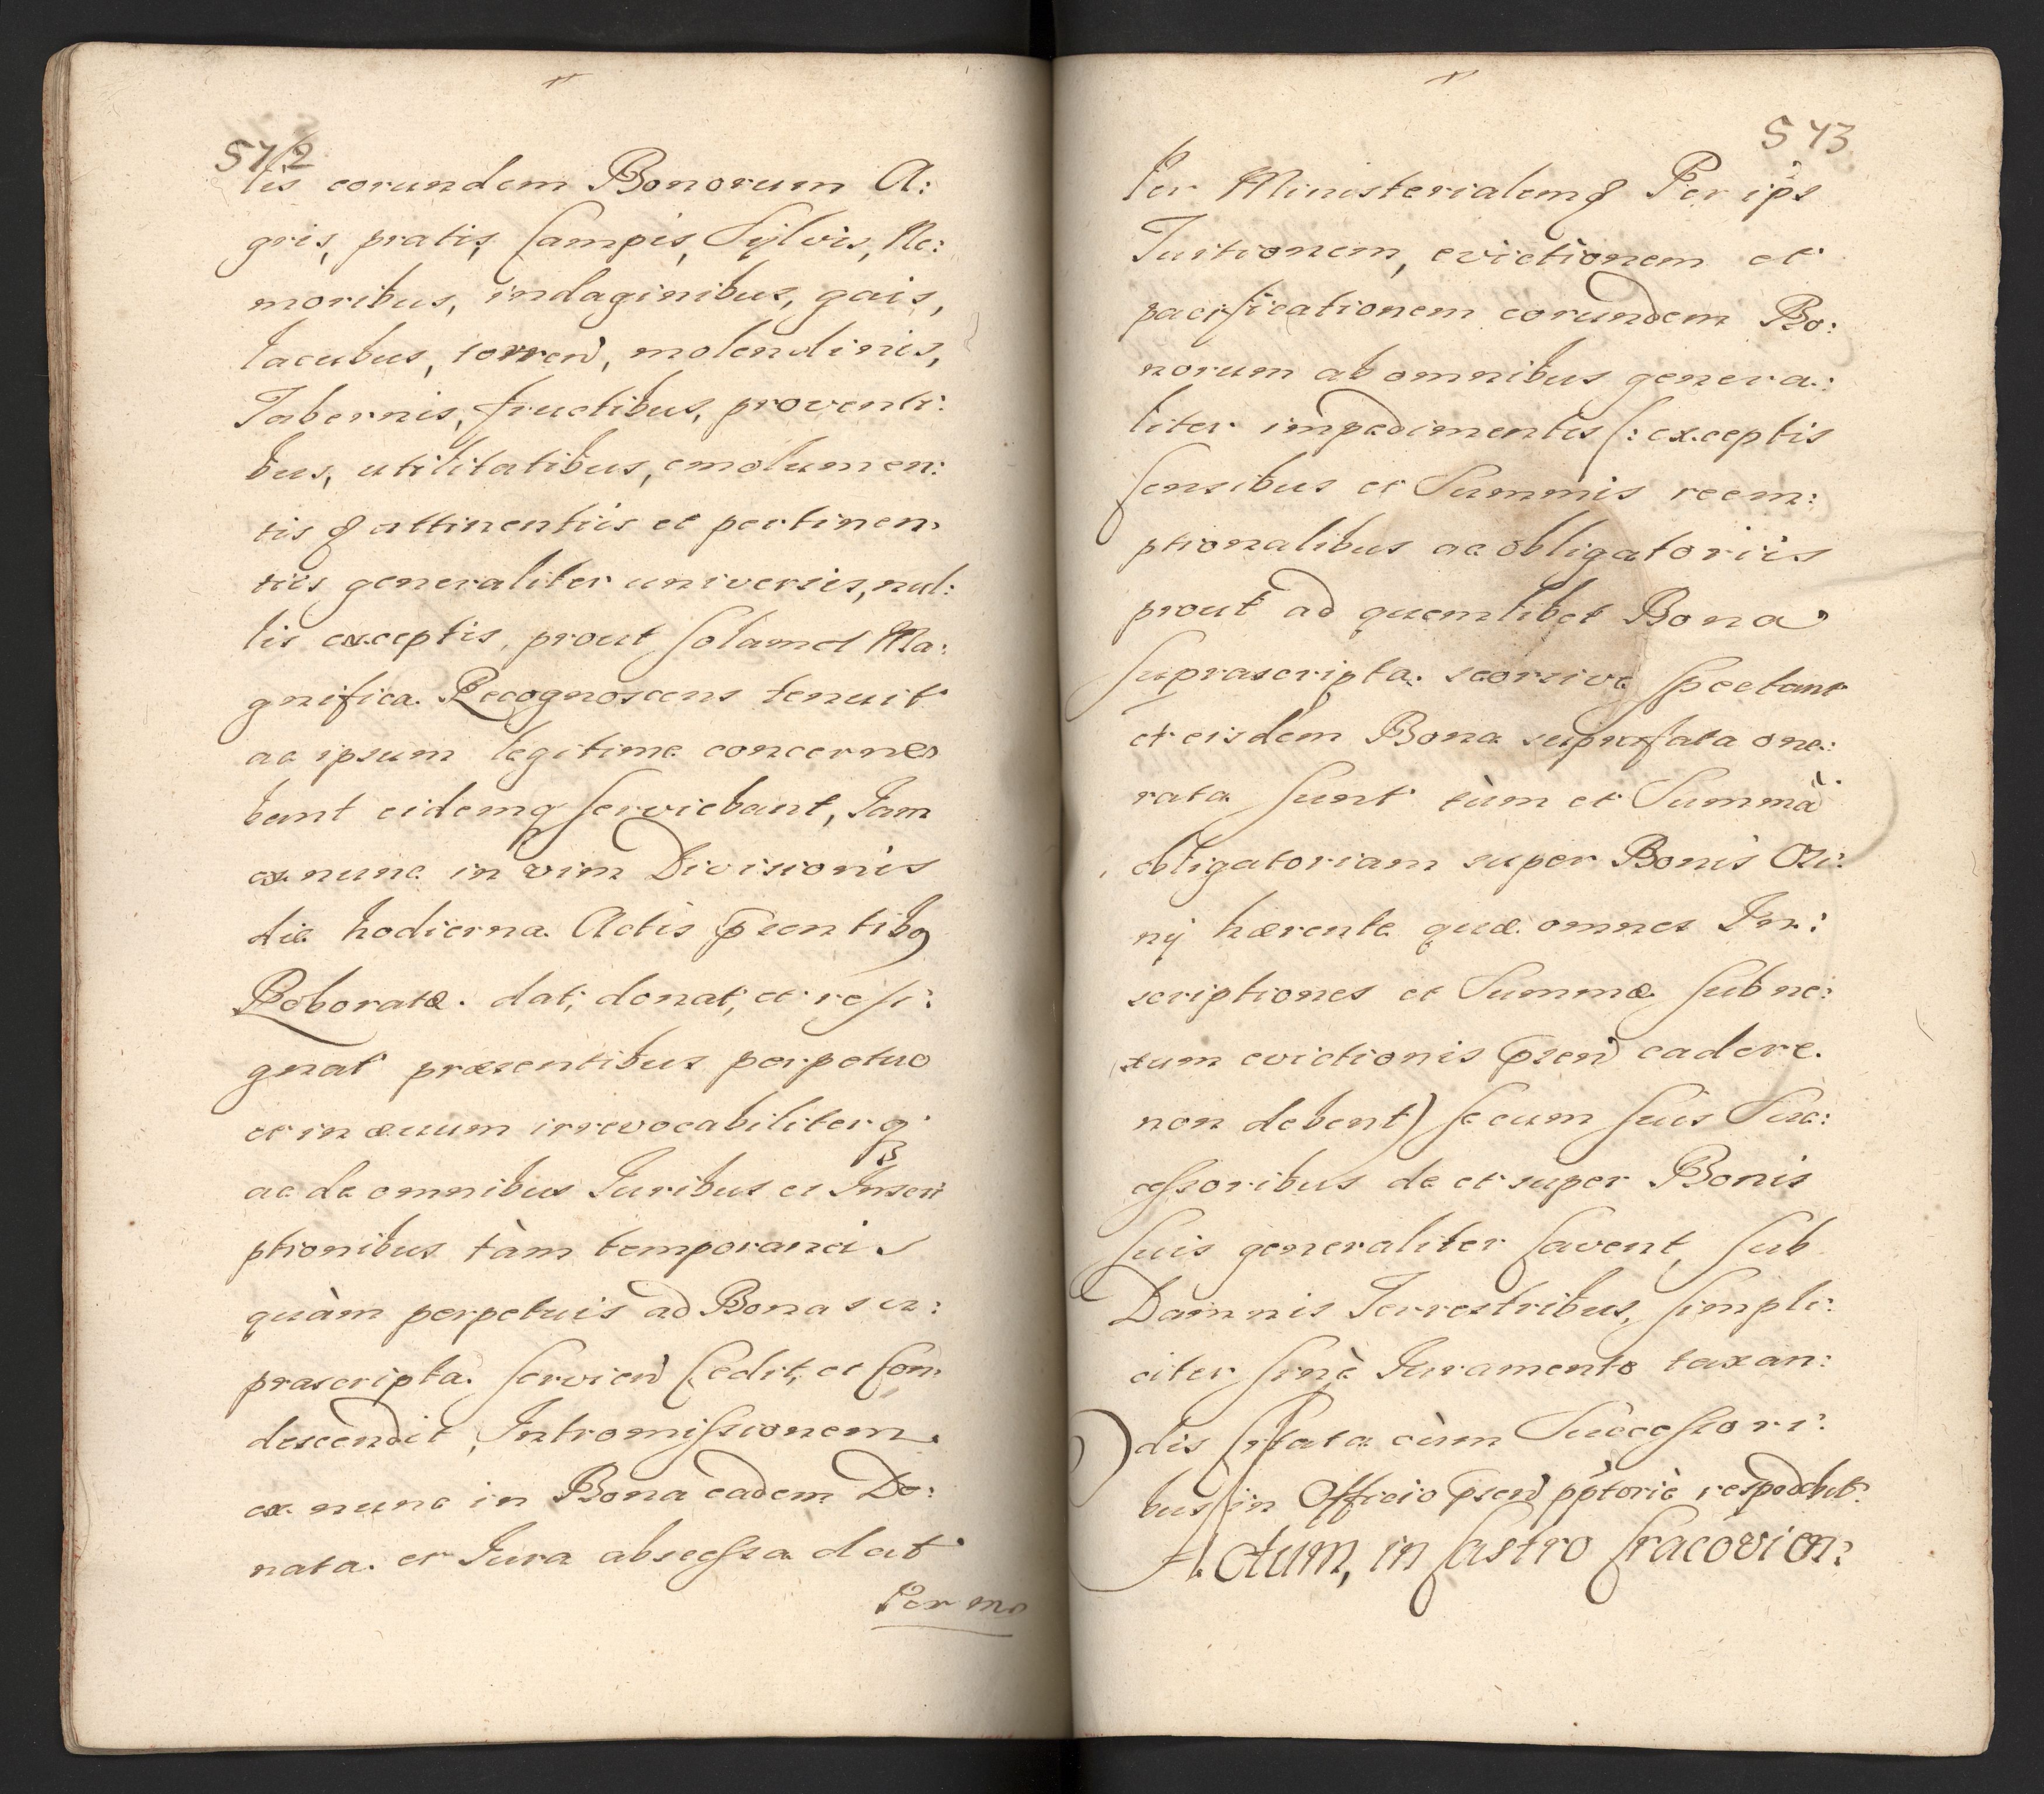 572
tis eorundem Bonorum A:
gris, pratis, Campis, Sÿlvis, Ne:
moribus, indaginibus, gais,
lacubus, torren, molendinis,
Tabernis, fructibus, proventi:
bus, utilitatibus, emolumen:
tis q attinentiis et pertinen,
tiis generaliter universis, nul:
lis exceptis, prout solamet Ma:
gnifica Recognoscens tenuit
ac ipsum legitime concerne
bant eidemq serviebant, Jam
ex nunc in vim Divisionis
die hodierna Actis pzentibq
Roboratæ. dat, donat, et resi:
gnat præsentibus perpetuo
et in ævum irrevocabiliter q
ac de omnibus Juribus et Inscri
ptionibus tàm temporanei s
quàm perpetuis ad Bona su:
prascripta servien Cedit, et Con
descendit, Intromissionem
ex nunc in Bona eadem Do:
nata et Jura abscessa dat
Per m
573
Per Ministerialemq Per ips
Tuitionem, evictionem et
pacificationem eorundem Bo:
norum ab omnibus genera:
liter impedimentis (: exceptis
Censibus et Summis reem:
ptionalibus ac obligatoriis
prout ad quemlibet Bona
suprascripta seorsive spectant
et eisdem Bona suprafata one:
rata sunt tùm et Summa
obligatoriam super Bonis
nÿ hærente quæ omnes In:
scriptiones et Summæ sub ne:
xum evictionis pzen cadere
non debent) se cum suis Suc:
cessoribus de et super Bonis
suis generaliter Cavent, sub
Damnis Terrestribus, simpli:
citer sinè Juramento taxan:
dis Citata cùm Successori:
bus in Officio pzen pptoriè respodebit.
Actum, in Castro Cracovien: